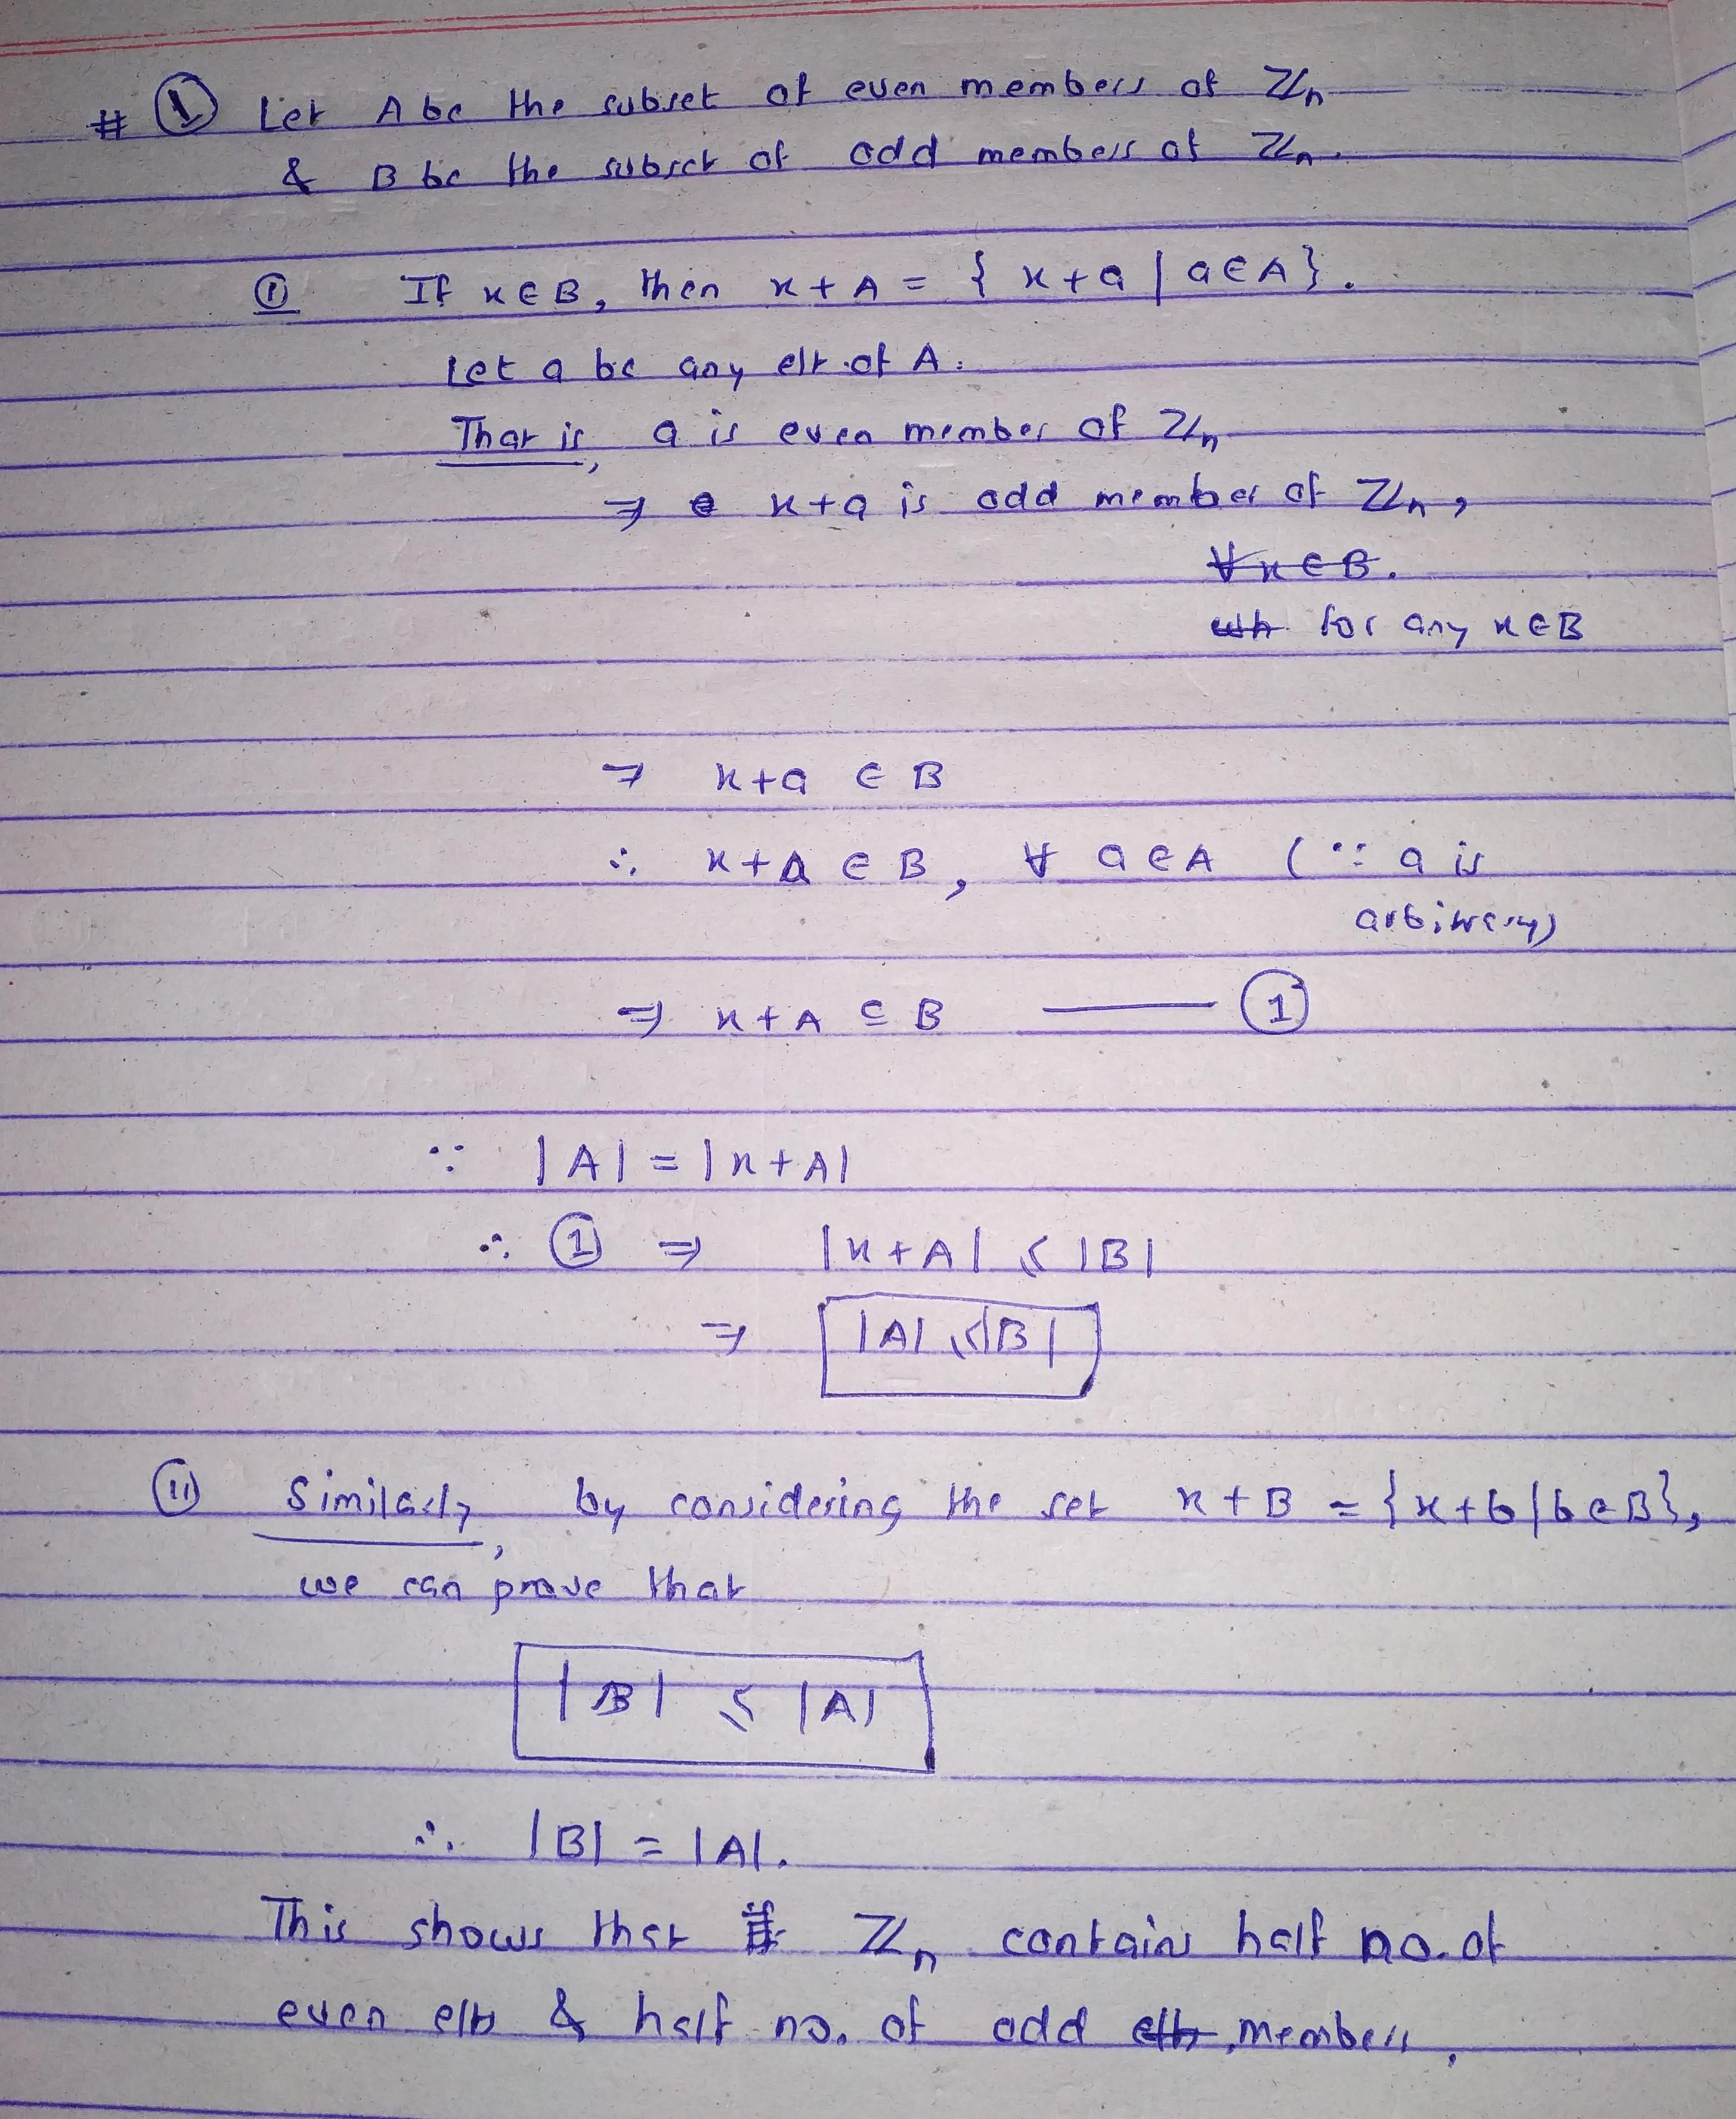 # ① Let A be the subset of even members of ℤn
& B be the subset of odd members of ℤn.
① If x∈B, then x+A = { x+a | a∈A }.
Let a be any elt of A.
That is, a is even member of ℤn
⇒ x+a is odd member of ℤn,
∀x∈B.
for any x∈B
⇒ x+a ∈ B
∴ x+a ∈ B, ∀ a∈A (∵ a is
arbitrary)
⇒ x+A ⊆ B —— ①
∵ |A| = |x+A|
∴ ① ⇒ |x+A| ≤ |B|
⇒ |A| ≤ |B|
(ii) Similarly, by considering the set x+B = {x+b|b∈B},
we can prove that
|B| ≤ |A|
∴ |B| = |A|.
This shows that ℤn contains half no. of
even elts & half no. of odd elts members.